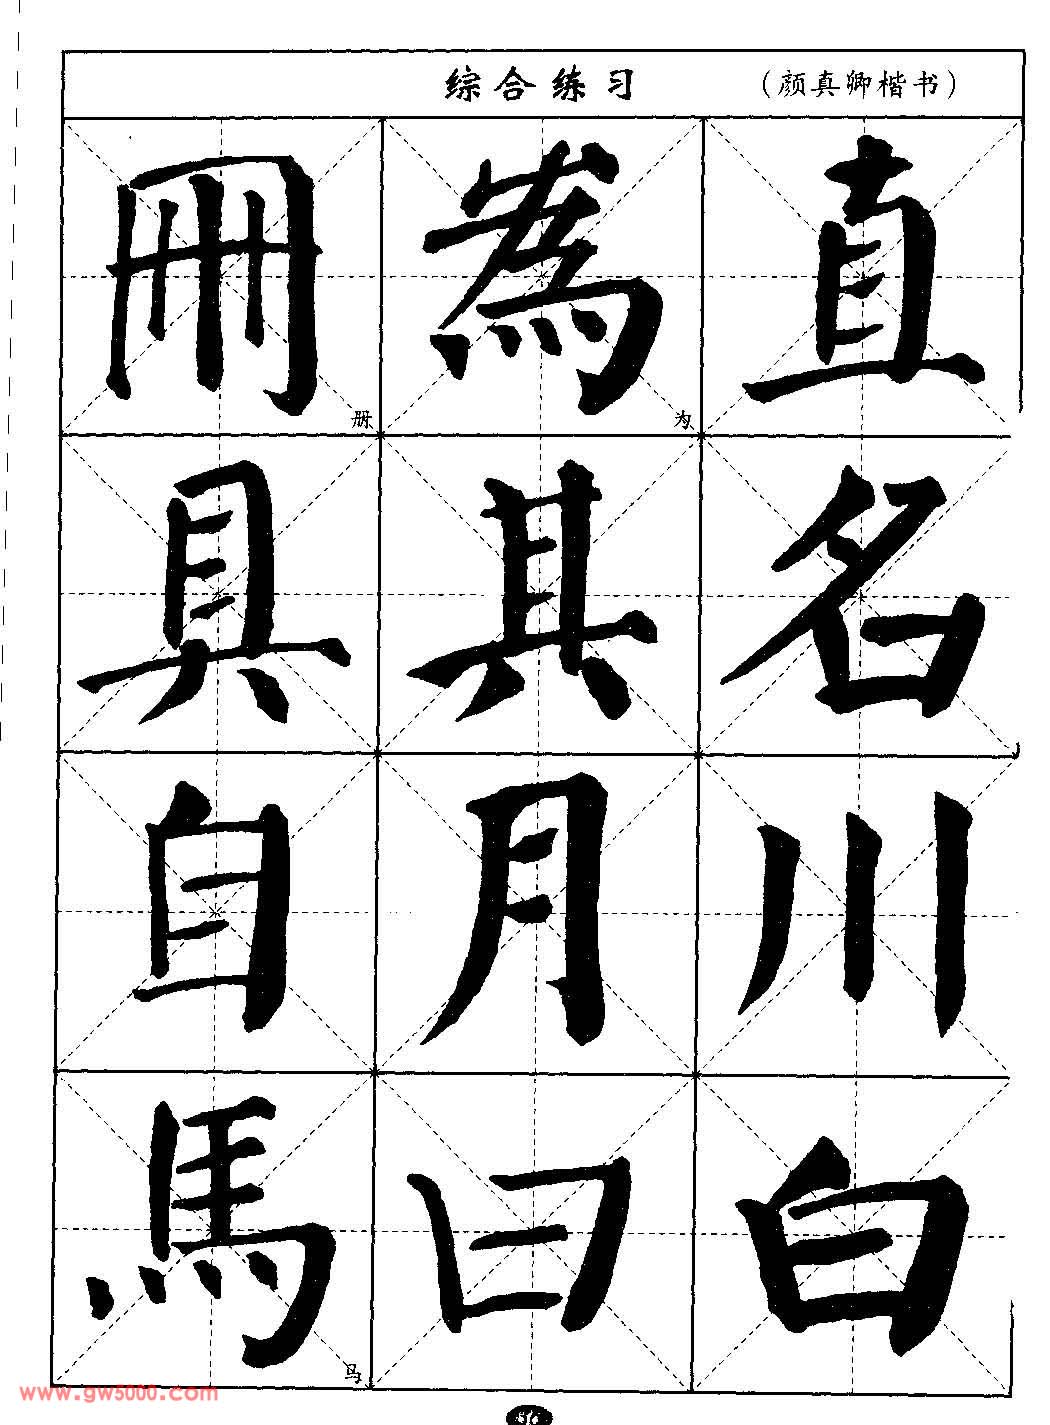 综合练习 （颜真卿楷书）
冊 為 直
册 为
具 其 名
自 月 川
馬 曰 白
马
www.gw5000.com